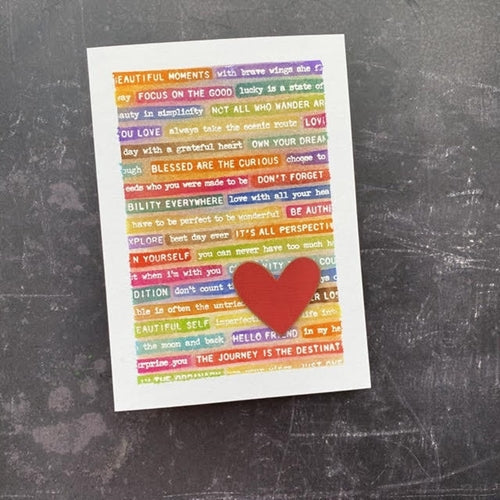 EAUTIFUL MOMENTS with brave wings she f
ay FOCUS ON THE GOOD lucky is a state of
auty in simplicity NOT ALL WHO WANDER AR
OU LOVE always take the scenic route LOVE
day with a grateful heart OWN YOUR DREAM
ough BLESSED ARE THE CURIOUS choose to
eeds who you were made to be DON'T FORGET
BILITY EVERYWHERE love with all your hea
have to be perfect to be wonderful BE AUTHE
XPLORE best day ever IT'S ALL PERSPECTI
N YOURSELF you can never have too much h
t when i'm with you COU
DITION don't count t
ble is often the untrie ER LOS
EAUTIFUL SELF imperfect life int
the moon and back HELLO FRIEND in my he
urprise you THE JOURNEY IS THE DESTINAT
IN THE ORDINARY JUST ONE